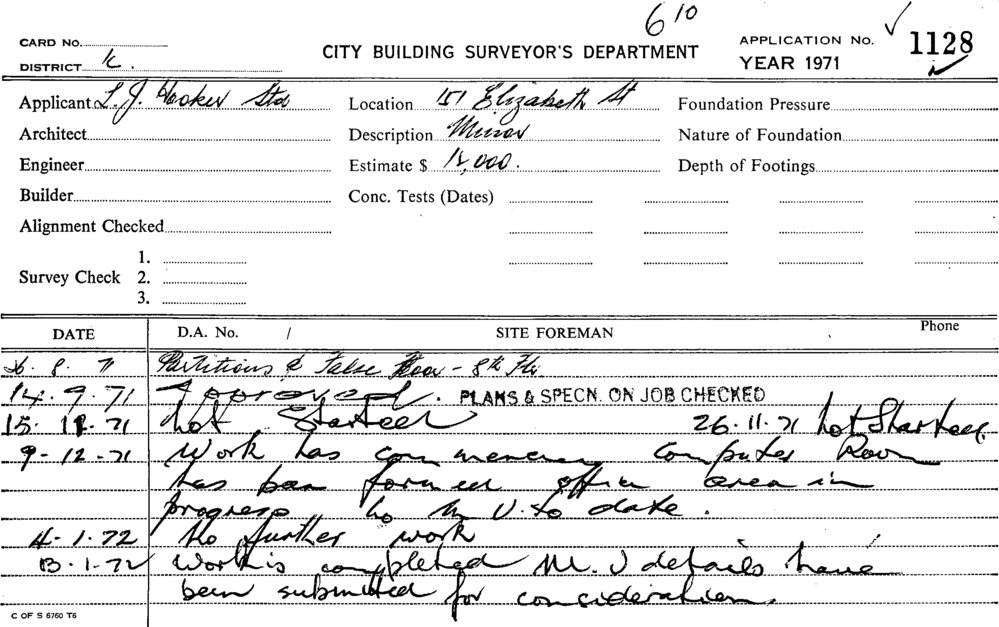 6 10
CARD No.
DISTRICT K.
CITY BUILDING SURVEYOR'S DEPARTMENT
APPLICATION No. 1128
YEAR 1971
Applicant L. J. Hooker Ltd
Location 151 Elizabeth St
Foundation Pressure
Architect
Description Minor
Nature of Foundation
Engineer
Estimate $ ,000.
Depth of Footings
Builder
Conc. Tests (Dates)
Alignment Checked
Survey Check
1.
2.
3.
DATE
D.A. No. /
SITE FOREMAN
Phone
8. 71 Partitions & False Floor - 8th Flr
14. 9. 71 Approved. PLANS & SPECN. ON JOB CHECKED
15. 11. 71 Not Started 26.11.71 Not Started
9-12-71 Work has commenced Computer Room
has been formed office area in
progress No M.V. to date.
4-1-72 No further work
13.1.72 Work is completed M.V details have
been submitted for consideration.
C OF S 6760 T6